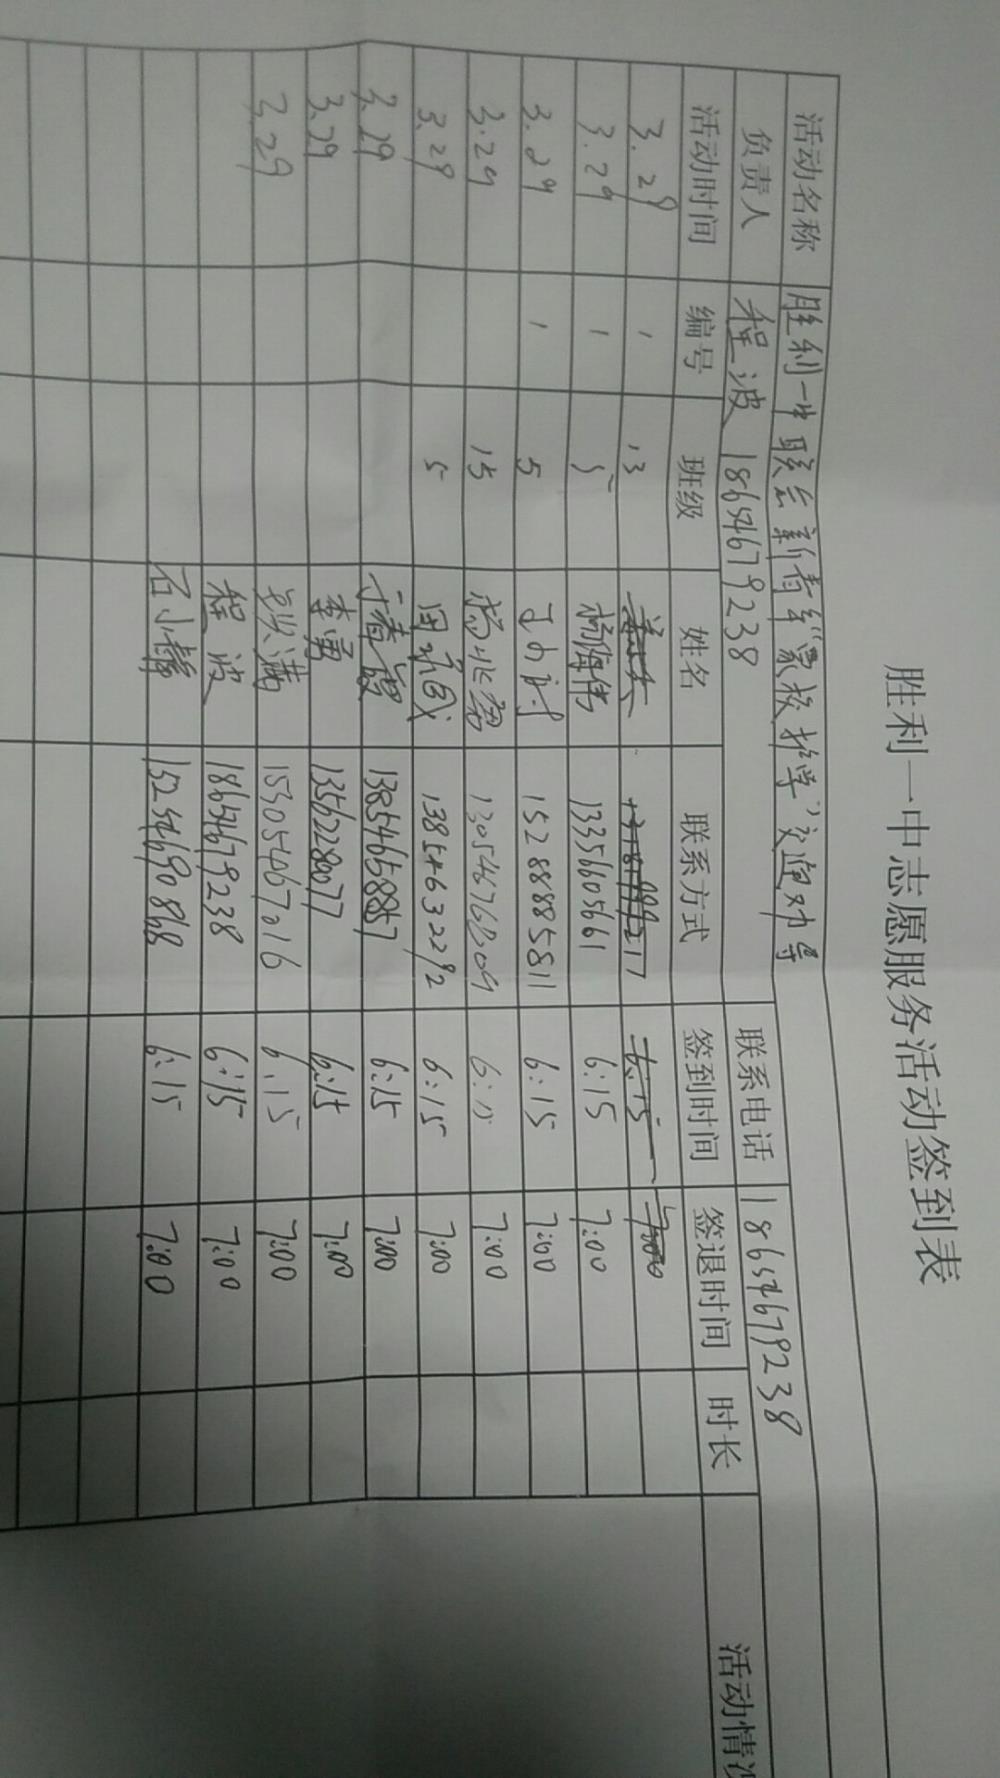 胜利一中志愿服务活动签到表
活动名称 胜利一中联合新青年"家校护学"交通劝导
负责人 程波 18654679238 联系电话 18654679238
活动时间 编号 班级 姓名 联系方式 签到时间 签退时间 时长 活动情况
3.29 1 13
3.29 1 5 杨海伟 13356605661 6:15 7:00
3.29 1 5 15288885811 6:15 7:00
3.29 15 13054676809 6:15 7:00
3.29 5 13854632292 6:15 7:00
3.29 于春霞 13854658857 6:15 7:00
3.29 李勇 13562280077 6:15 7:00
3.29 满 15305467016 6.15 7:00
程波 18654679238 6:15 7:00
石小静 15254690868 6:15 7:00